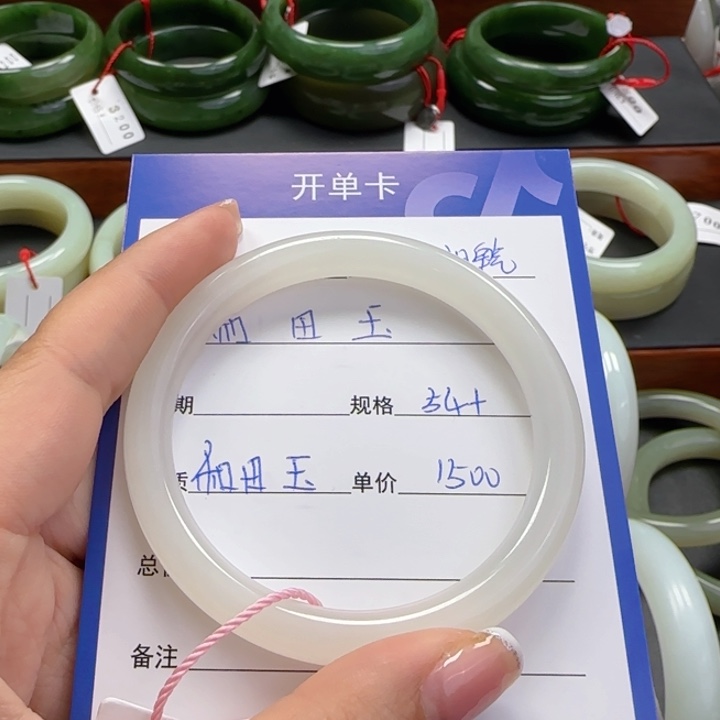 开单卡
田玉
期 规格 54+
质 和田玉 单价 1500
总
备注
3200